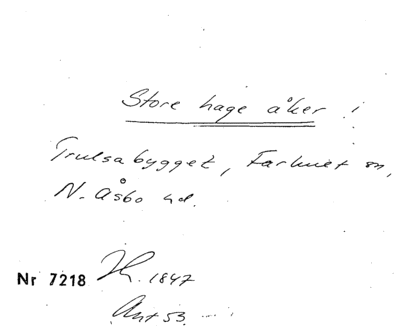 Store hage åker i
Trulsabygget, Farhult sn,
N. Åsbo hd.
Nr 7218 1847
Ant 53